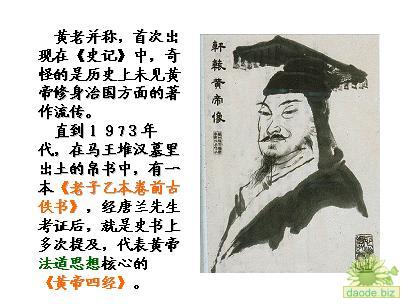 黄老并称，首次出
现在《史记》中，奇
怪的是历史上未见黄
帝修身治国方面的著
作流传。
直到1973年
代，在马王堆汉墓里
出土的帛书中，有一
本《老子乙本卷前古
佚书》，经唐兰先生
考证后，就是史书上
多次提及，代表黄帝
法道思想核心的
《黄帝四经》。
軒轅黄帝像
daode.biz